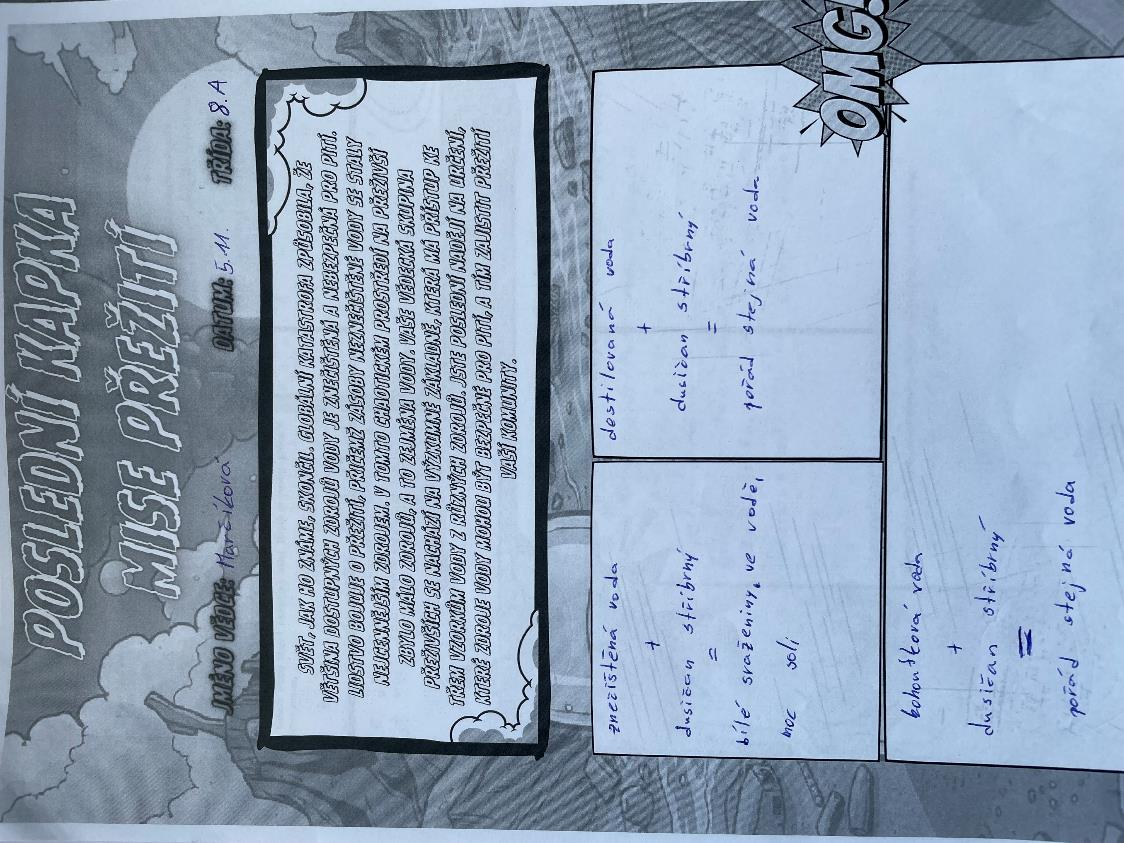 POSLEDNÍ KAPKA
MISE PŘEŽITÍ
JMÉNO VĚDCE: Marčíková DATUM: 5.11. TŘÍDA: 8.A
SVĚT, JAK HO ZNÁME, SKONČIL. GLOBÁLNÍ KATASTROFA ZPŮSOBILA, ŽE
VĚTŠINA DOSTUPNÝCH ZDROJŮ VODY JE ZNEČIŠTĚNÁ A NEBEZPEČNÁ PRO PITÍ.
LIDSTVO BOJUJE O PŘEŽITÍ, PŘIČEMŽ ZÁSOBY NEZNEČIŠTĚNÉ VODY SE STALY
NEJCENNĚJŠÍM ZDROJEM. V TOMTO CHAOTICKÉM PROSTŘEDÍ NA PŘEŽIVŠÍ
ZBYLO MÁLO ZDROJŮ, A TO ZEJMÉNA VODY. VAŠE VĚDECKÁ SKUPINA
PŘEŽIVŠÍCH SE NACHÁZÍ NA VÝZKUMNÉ ZÁKLADNĚ, KTERÁ MÁ PŘÍSTUP KE
TŘEM VZORKŮM VODY Z RŮZNÝCH ZDROJŮ. JSTE POSLEDNÍ NADĚJÍ NA URČENÍ,
KTERÉ ZDROJE VODY MOHOU BÝT BEZPEČNÉ PRO PITÍ, A TÍM ZAJISTIT PŘEŽITÍ
VAŠÍ KOMUNITY.
znečištěná voda
+
dusičan stříbrný
=
bílé sraženiny, ve vodě,
moc soli
destilovaná voda
+
dusičan stříbrný
=
pořád stejná voda
OMG!
kohoutková voda
+
dusičan stříbrný
=
pořád stejná voda